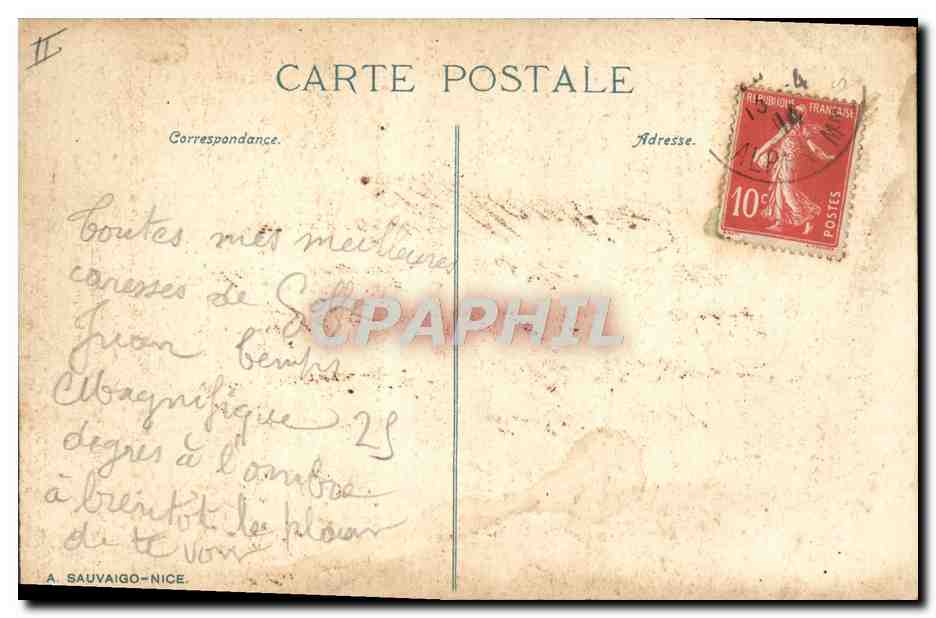 II
CARTE POSTALE
Correspondance.
Adresse.
REPUBLIQUE FRANÇAISE
10c
POSTES
15
14
ALP
Toutes mes meilleures
caresses de Golfe
Juan temps
Magnifique 25
degres à l'ombre
à bientôt le plaisir
de te voir
CPAPHIL
A. SAUVAIGO-NICE.